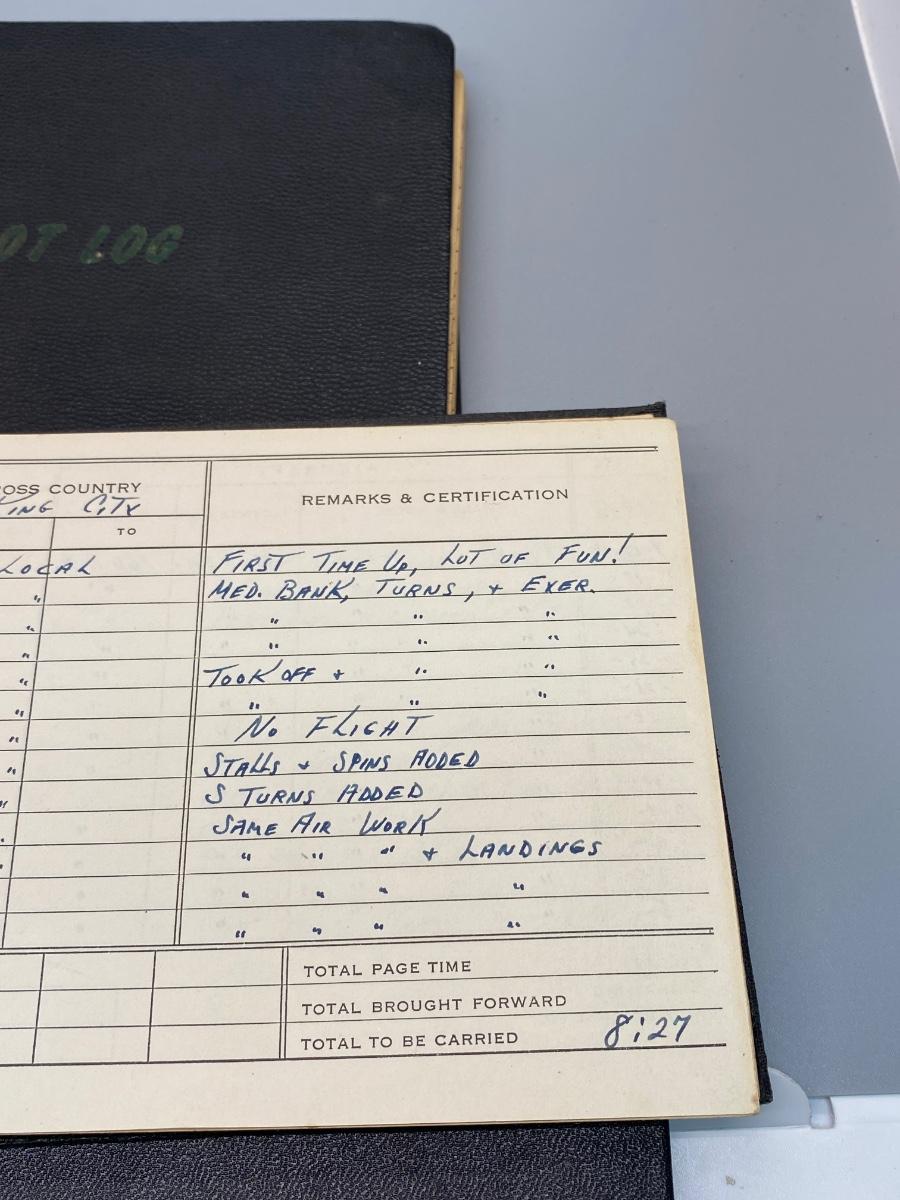 OT LOG
OSS COUNTRY
KING CITY
REMARKS & CERTIFICATION
TO
LOCAL FIRST TIME UP, LOT OF FUN!
" MED. BANK, TURNS, + EXER.
" " " "
" " " "
" TOOK OFF + " "
" " " "
" NO FLIGHT
" STALLS + SPINS ADDED
" S TURNS ADDED
" SAME AIR WORK
" " " " + LANDINGS
" " " "
" " " "
TOTAL PAGE TIME
TOTAL BROUGHT FORWARD
TOTAL TO BE CARRIED 8:27